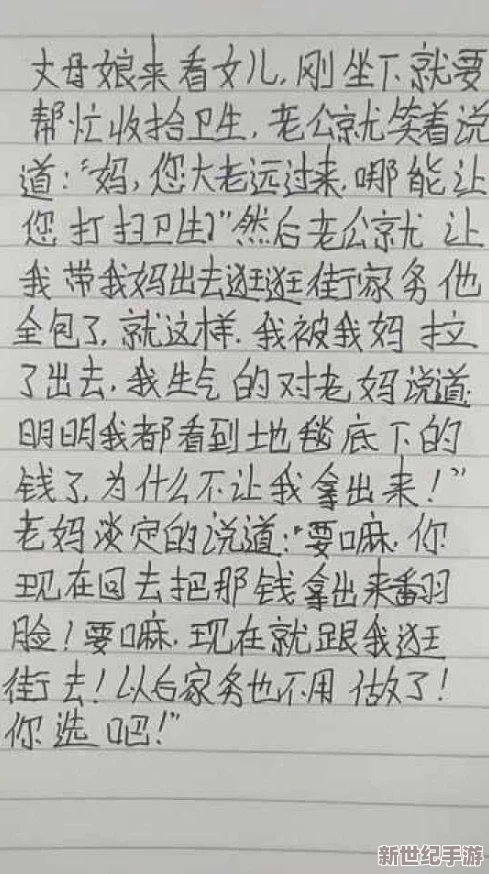 丈母娘来看女儿,刚坐下就要
帮忙收拾卫生,老公就笑着说
道:“妈,您大老远过来,哪能让
您打扫卫生?”然后老公就让
我带我妈出去逛逛街家务他
全包了,就这样,我被我妈拉
了出去,我生气的对老妈说道
明明我都看到地毯底下的
钱了,为什么不让我拿出来!”
老妈淡定的说道:“要嘛,你
现在回去把那钱拿出来翻
脸!要嘛,现在就跟我逛
街去!以后家务也不用做了!
你选吧!”
新世纪手游